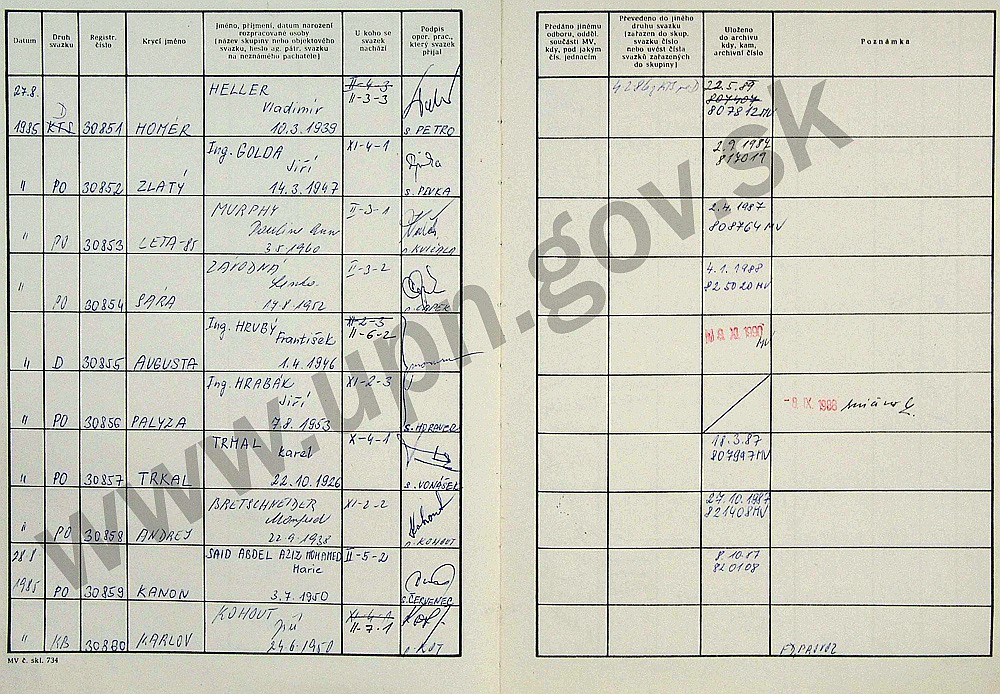 Datum
Druh svazku
Registr. číslo
Krycí jméno
Jméno, příjmení, datum narození
rozpracované osoby
(název skupiny nebo objektového
svazku, heslo ag. pátr. svazku
na neznámého pachatele)
U koho se
svazek
nachází
Podpis
oper. prac.,
který svazek
přijal
Předáno jinému
odboru, odděl.
součásti MV,
kdy, pod jakým
čís. jednacím
Převedeno do jiného
druhu svazku
(zařazen do skup.
svazku číslo
nebo uvést čísla
svazků zařazených
do skupiny)
Uloženo
do archivu
kdy, kam,
archivní číslo
Poznámka
27.8. HELLER II-4-3 22.5.89
D Vladimír II-3-3 807407
1985 KTS 30851 HOMÉR 10.3.1939 s PETRO 807812 MV
Ing. GOLDA XI-4-1 2.9.1987
Jiří 817019
" PO 30852 ZLATÝ 14.3.1947 s. PIVKA
MURPHY II-3-1 2.4.1987
Pauline Ann 808764 MV
" PO 30853 LETA-85 3.5.1960 s. KVIČALA
ZÁVODNÁ II-3-2 4.1.1988
Lenka 825020 MV
" PO 30854 SÁRA 17.8.1952 s. ČAPEK
Ing. HRUBÝ II-2-3
František II-6-2 MV
" D 30855 AUGUSTA 1.4.1946
Ing. HRABÁK XI-2-3
Jiří -8. IX. 1988
" PO 30856 PALYZA 7.8.1953 s. MORAVEC
TRMAL X-4-1 18.3.87
Karel 807947 MV
" PO 30857 TRKAL 22.10.1926 s. VONÁŠEK
BRETSCHNEIDER XI-2-2 27.10.1987
Manfred 821408 MV
" PO 30858 ANDREJ 22.9.1938 s. KOHOUT
28.8. SAID ABDEL AZIZ MOHAMED II-5-2 8.10.87
Marie 820108
1985 PO 30859 KANON 3.7.1950 s. ČERVENEC
KOHOUT XI-4-1
Jiří II-7-1
" KB 30860 KARLOV 24.6.1950 s. KOT
MV č. skl. 734
www.upn.gov.sk